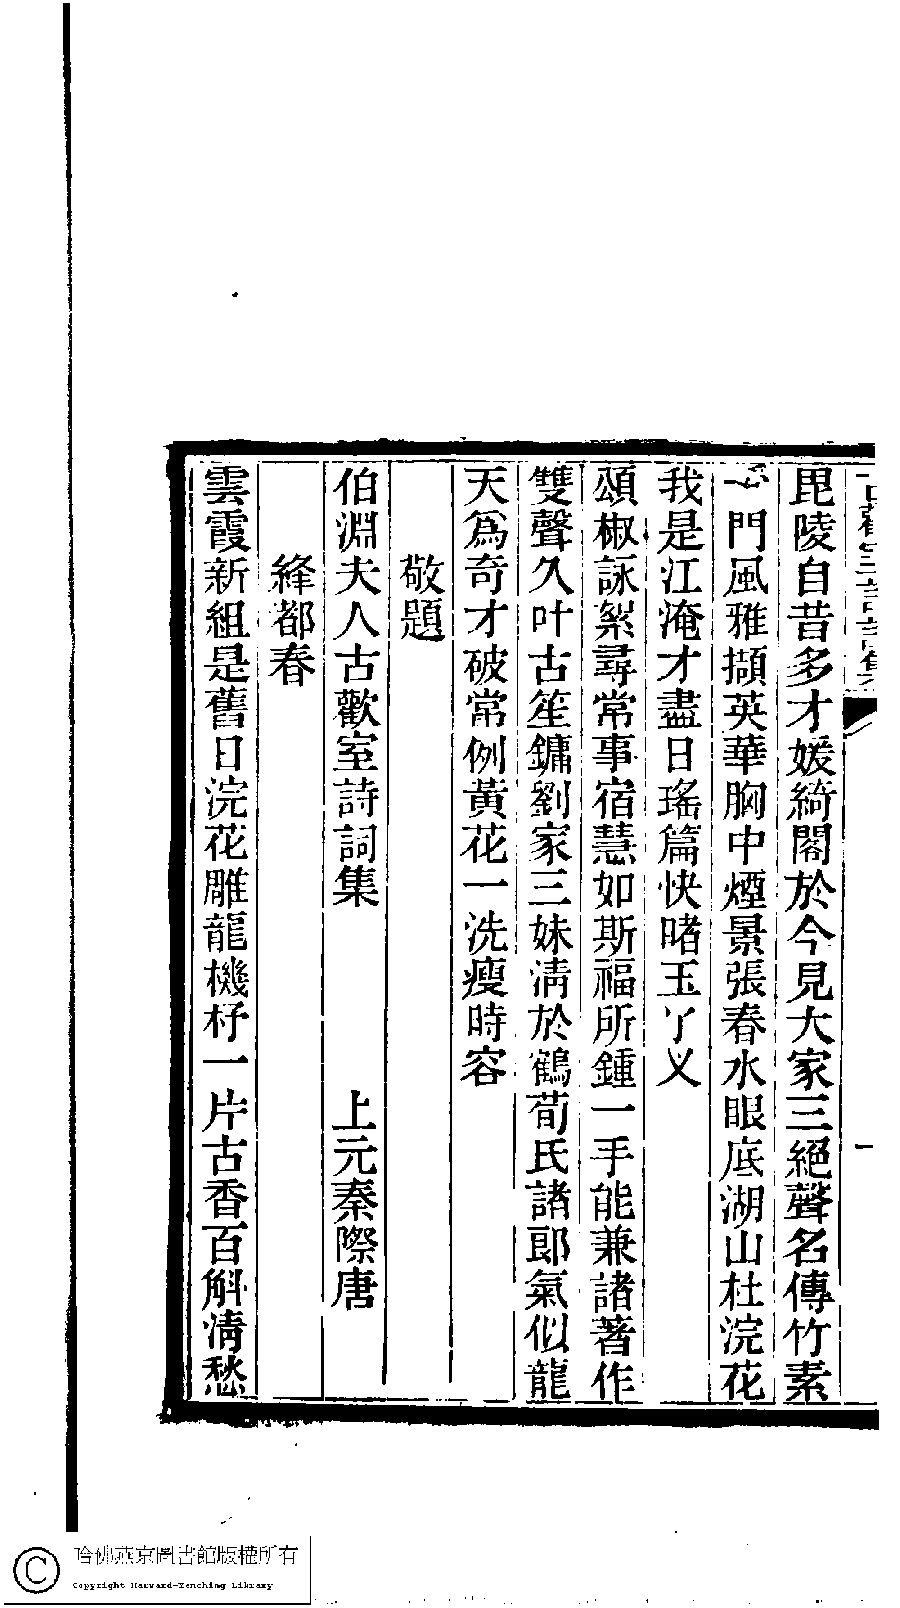 古歡室詩詞集
一
毘陵自昔多才媛綺閣於今見大家三絕聲名傳竹素
一門風雅擷英華胸中煙景張春水眼底湖山杜浣花
我是江淹才盡日瑤篇快暏玉丫叉
頌椒詠絮尋常事宿慧如斯福所鍾一手能兼諸著作
雙聲久叶古笙鏞劉家三妹清於鶴荀氏諸郎氣似龍
天爲奇才破常例黃花一洗瘦時容
敬題
伯淵夫人古歡室詩詞集　上元秦際唐
絳都春
雲霞新組是舊日浣花雕龍機杼一片古香百斛清愁
哈佛燕京圖書館版權所有
Copyright Harvard-Yenching Library